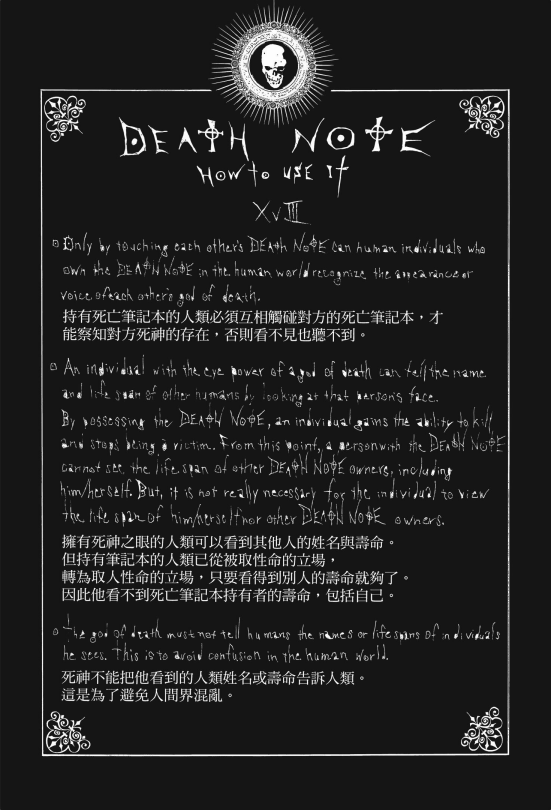 DEATH NOTE
HOW to USE It
XVIII
Only by touching each other's DEATH NOTE can human individuals who
own the DEATH NOTE in the human world recognize the appearance or
voice of each other's god of death.
持有死亡筆記本的人類必須互相觸碰對方的死亡筆記本，才
能察知對方死神的存在，否則看不見也聽不到。
An individual with the eye power of a god of death can tell the name
and life span of other humans by looking at that person's face.
By possessing the DEATH NOTE, an individual gains the ability to kill
and stops being a victim. From this point, a person with the DEATH NOTE
cannot see the life span of other DEATH NOTE owners, including
him/herself. But, it is not really necessary for the individual to view
the life span of him/herself nor other DEATH NOTE owners.
擁有死神之眼的人類可以看到其他人的姓名與壽命。
但持有筆記本的人類已從被取性命的立場，
轉為取人性命的立場，只要看得到別人的壽命就夠了。
因此他看不到死亡筆記本持有者的壽命，包括自己。
The god of death must not tell humans the names or life spans of individuals
he sees. This is to avoid confusion in the human world.
死神不能把他看到的人類姓名或壽命告訴人類。
這是為了避免人間界混亂。